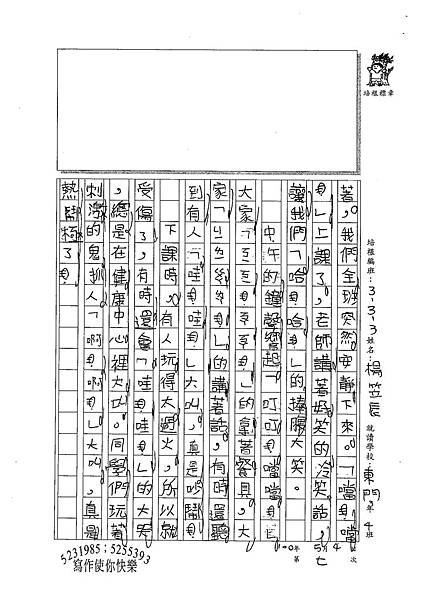 培根標章
培根編班：3.3.3姓名：楊笠長 就讀學校：東門 年4班
著，我們全班突然安靜下來。「噹！噹
！」上課了，老師講著好笑的冷笑話，
讓我們「哈！哈！」的捧腹大笑。
中午的鐘聲響起「叮！叮！噹噹！」
大家「ㄎㄎ！ㄎㄎ！」的拿著餐具。大
家「ㄐㄐ！」的講著話，有時還聽
到有人「哇！哇！」大叫，真是吵鬧！
下課時，有人玩得太過火，所以就
受傷了，有時還會「哇！哇！」的大哭
，總是在健康中心裡大叫。同學們玩著
刺激的鬼抓人「啊！啊！」大叫，真是
熱鬧極了！
第 七 次
5231985；5235393
寫作使你快樂